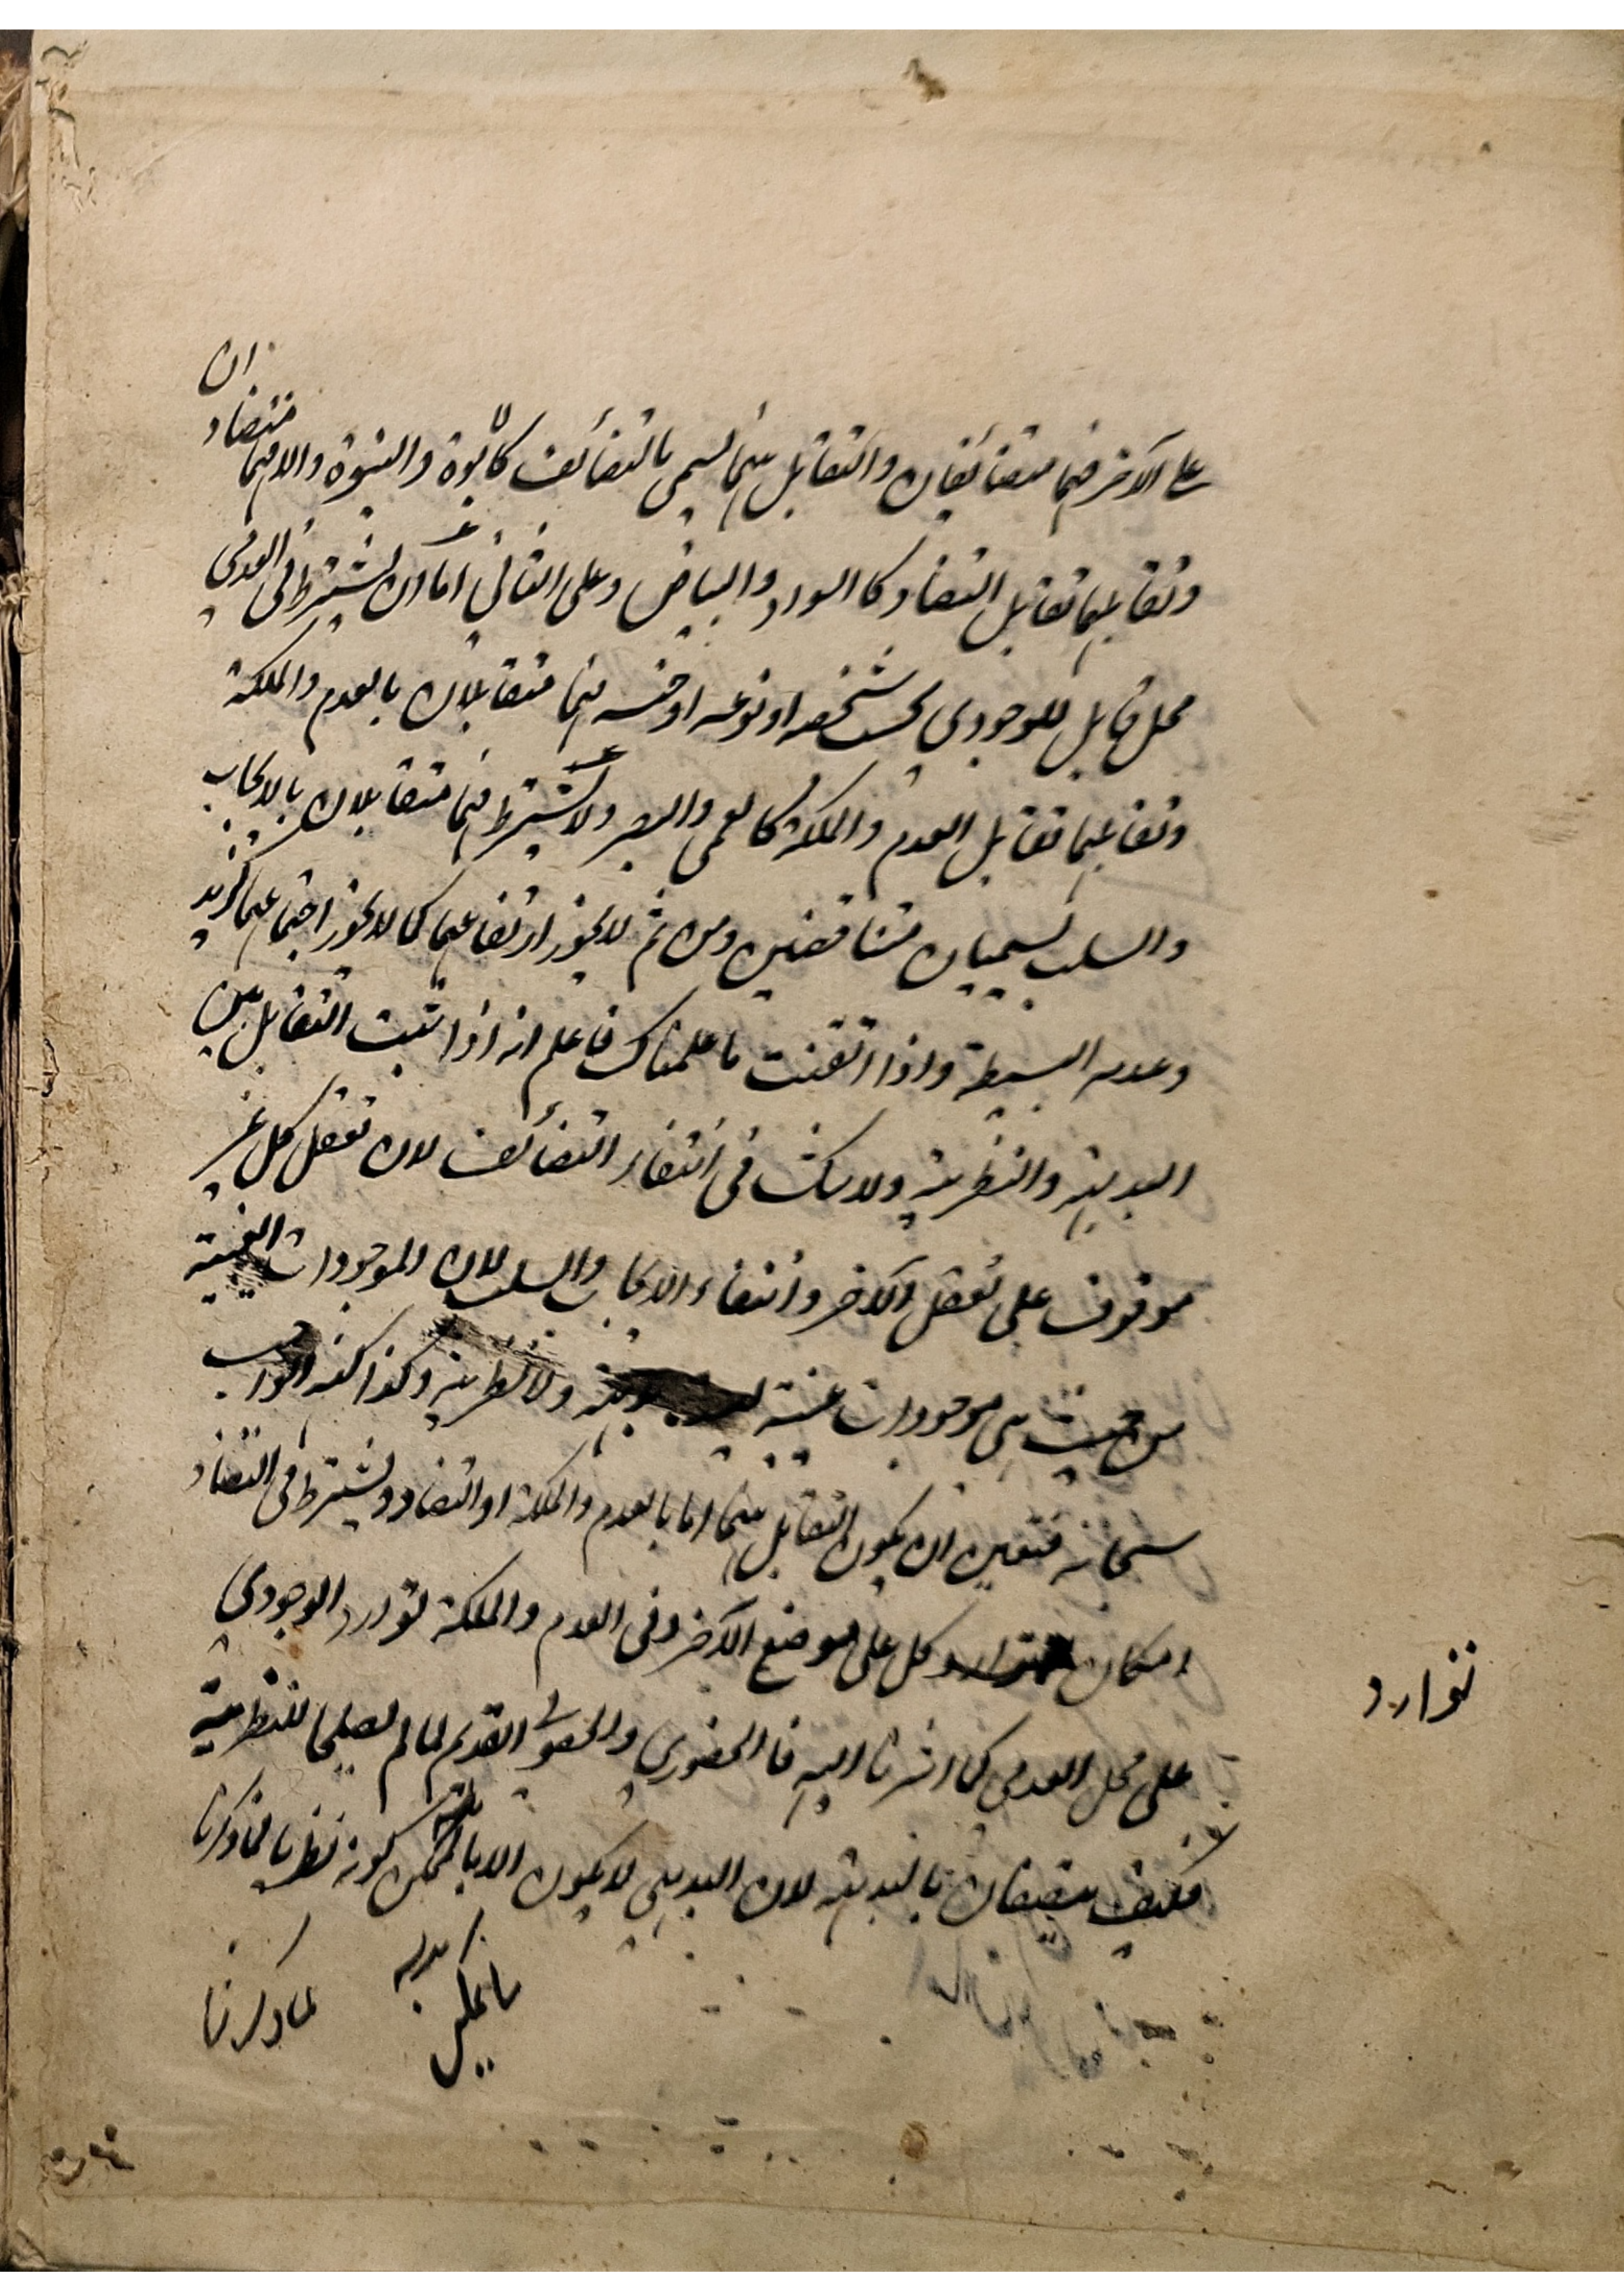 على الآخر فهما متضائفان والتقابل بينهما يسمى بالتضائف كالابوة والبنوة والا فهما متضادان
وتقابلهما تقابل التضاد كالسواد والبياض وعلى الثاني اما ان يشترط في العدمي
محل قابل للوجودي بحسب شخصه او نوعه او جنسه فهما متقابلان بالعدم والملكة
وتقابلهما تقابل العدم والملكة كالعمى والبصر ولا يشترط فهما متقابلان بالايجاب
والسلب يسميان متناقضين ومن ثم لا يجوز ارتفاعهما كما لا يجوز اجتماعهما كزيد
وعدمه البسيطة واذا اتقنت ما علمناك فاعلم انه اذا ثبت التقابل بين
البديهية والنظرية ولا شك في انتفاء التضائف لان تعقل كل غير
موقوف على تعقل الآخر وانتفاء الايجاب والسلب لان الموجودات العينية
من حيث هي موجودات عينية ليست بديهية ولا نظرية وكذا كنه الواجب
سبحانه فتعين ان يكون التقابل بينهما اما بالعدم والملكة او التضاد ويشترط في التضاد
امكان توارد كل على موضع الآخر وفي العدم والملكة توارد الوجودي
توارد
على محل العدمي كما اشرنا اليه فالحضوري والحصولي القديم لما لم يصلحا للنظرية
فكيف يتصفان بالبديهية لان البديهي لا يكون الا بالممكن كونه نظريا لما ذكرنا
ما يمكن
لما ذكرنا